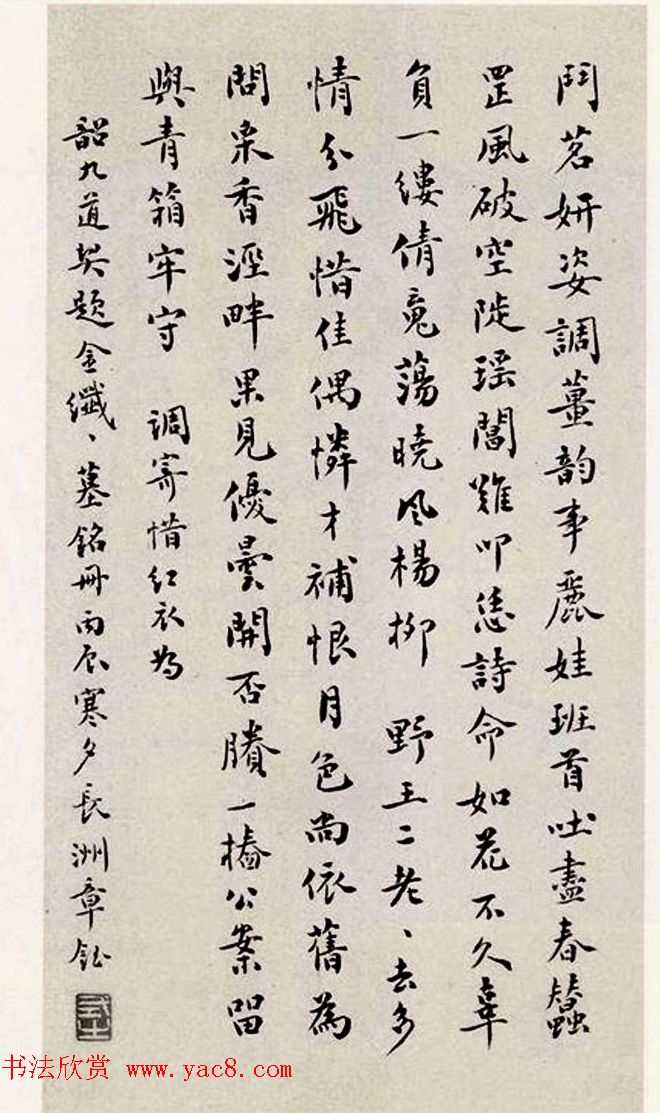 鬥茗妍姿調薑韵事麗娃班首吐盡春蠶
罡風破空陡瑶閽難叩恁詩命如花不久辜
負一縷倩䰟蕩曉風楊柳 野王二老、去多
情分飛惜佳偶憐才補恨月色尚依舊為
問采香涇畔果見優曇開否賸一樁公案畱
與青箱牢守 調寄惜紅衣為
韶九道契題金纖、墓銘冊丙辰寒夕長洲章鈺
式之
书法欣赏 www.yac8.com